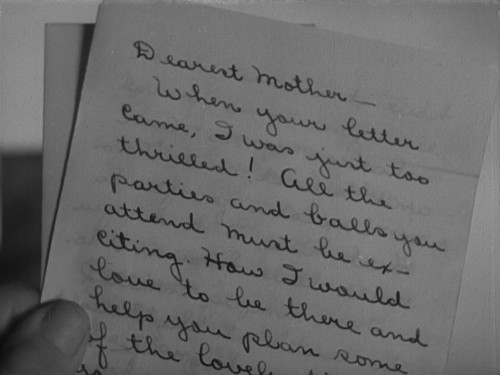 Dearest Mother —
When your letter
came, I was just too
thrilled! All the
parties and balls you
attend must be ex-
citing. How I would
love to be there and
help you plan some
of the lovely